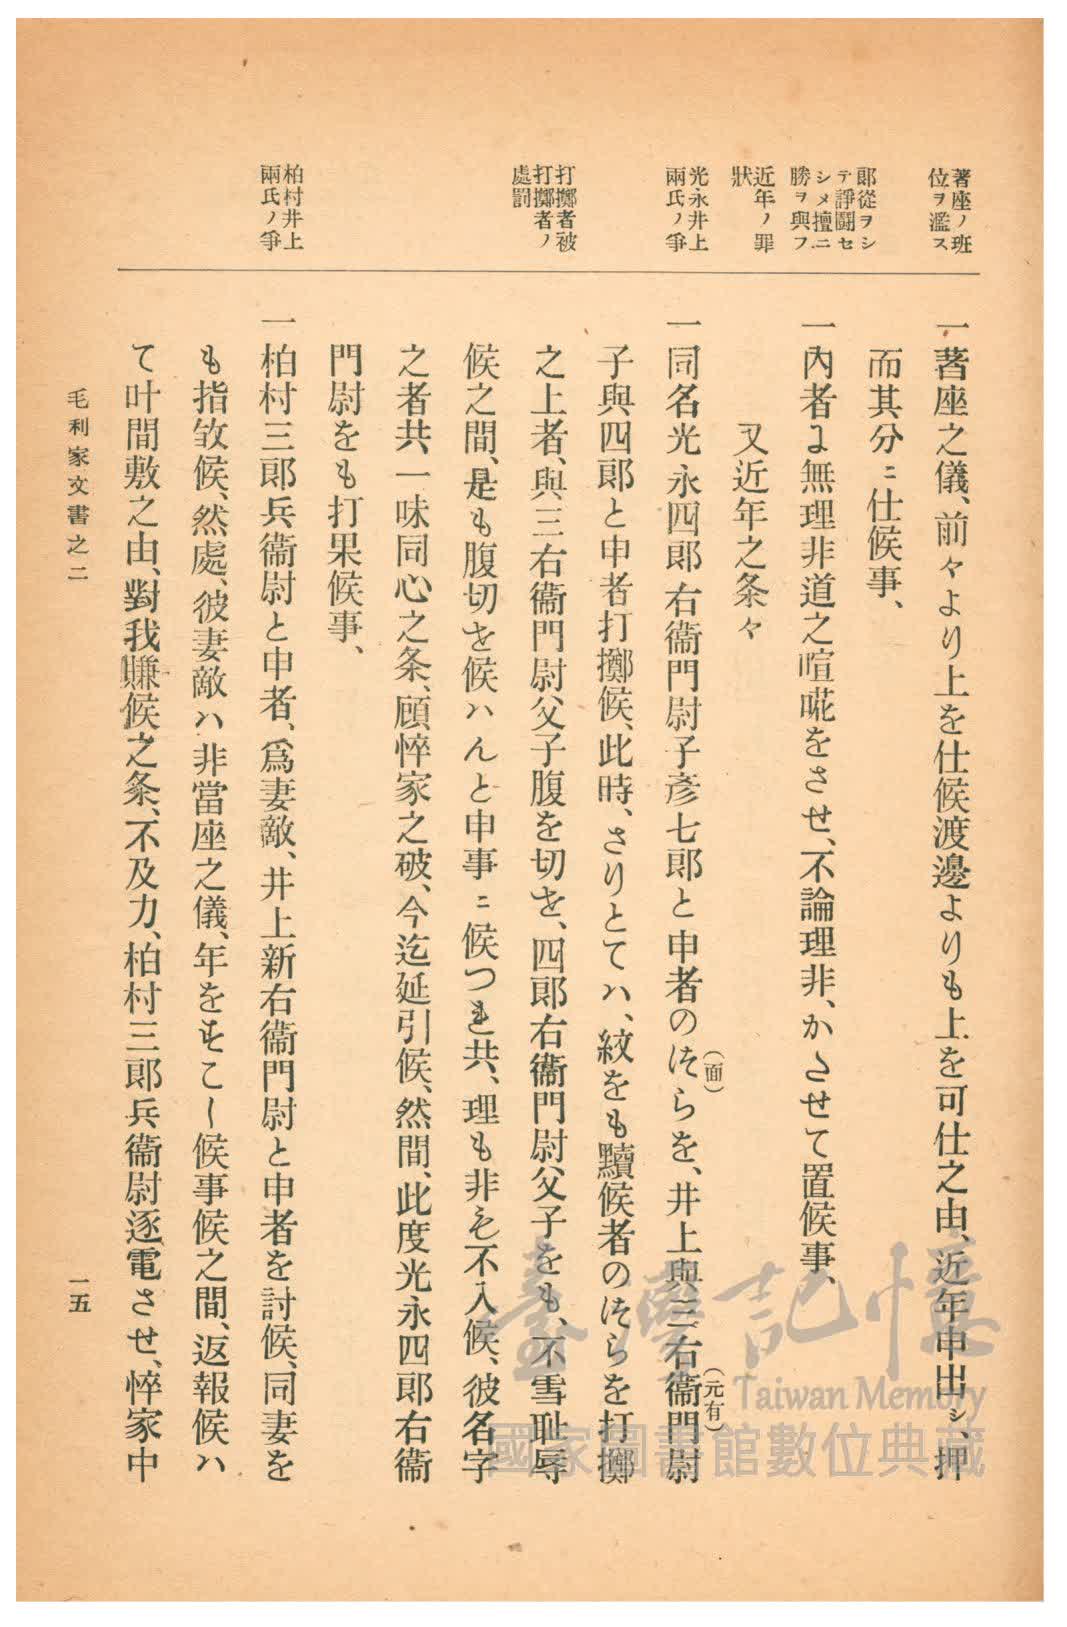 著座ノ班
位ヲ濫ス
郞從ヲシ
テ諍鬪セ
シメ擅ニ
勝ヲ與フ
近年ノ罪
狀
光永井上
兩氏ノ爭
打擲者被
打擲者ノ
處罰
柏村井上
兩氏ノ爭
一著座之儀、前々より上を仕候渡邊よりも上を可仕之由、近年申出シ、押
而其分ニ仕候事、
一內者ニ無理非道之喧𠵅をさせ、不論理非、かたせて置候事、
又近年之条々
一同名光永四郞右衞門尉子彥七郞と申者のつらを、井上與三右衞門尉
(面)
(元有)
子與四郞と申者打擲候、此時、さりとてハ、紋をも黷候者のつらを打擲
之上者、與三右衞門尉父子腹を切せ、四郞右衞門尉父子をも、不雪耻辱
候之間、是も腹切せ候ハんと申事ニ候つれ共、理も非も不入候、彼名字
之者共、一味同心之条、顧悴家之破、今迄延引候、然間、此度光永四郞右衞
門尉をも打果候事、
一柏村三郞兵衞尉と申者、爲妻敵、井上新右衞門尉と申者を討候、同妻を
も指敓候、然處、彼妻敵ハ非當座之儀、年をもこし候事候之間、返報候ハ
て叶間敷之由、對我賺候之条、不及力、柏村三郞兵衞尉逐電させ、悴家中
毛利家文書之二
一五
臺灣記憶
Taiwan Memory
國家圖書館數位典藏